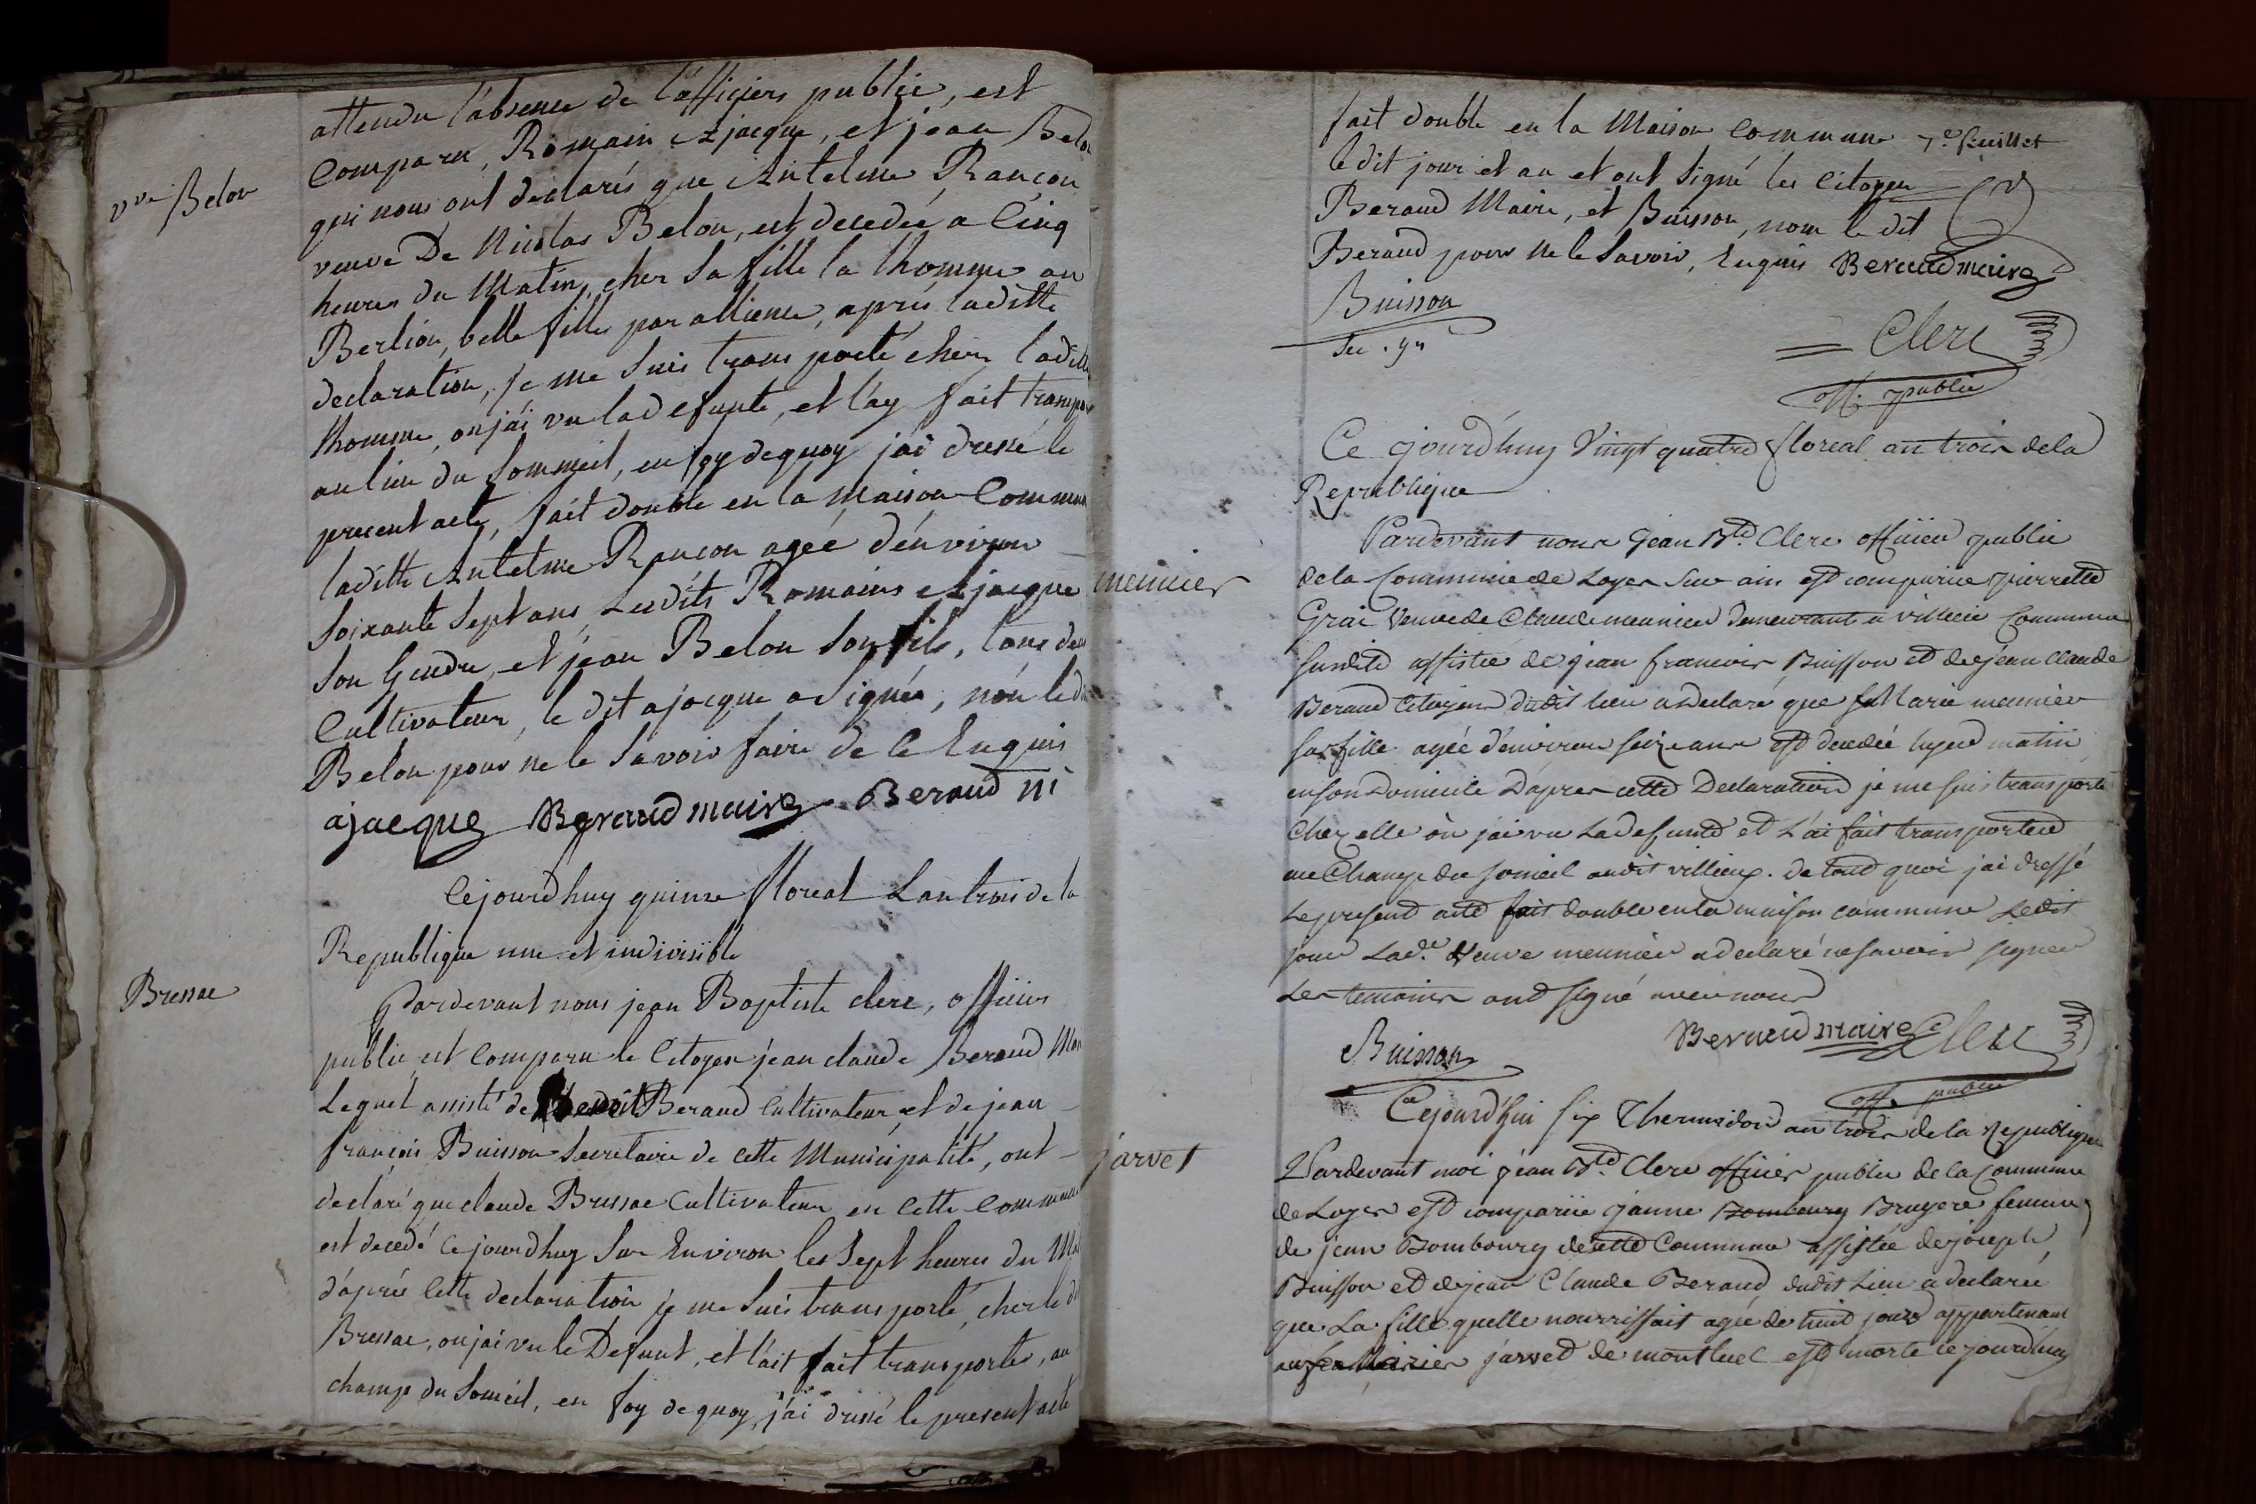 attendu l'absence de l'officiers public, est
Comparu, Romain Ajacque, et jean Belon
vve Belon
qui nous ont declarés que Antelme Rancon
veuve De Nicolas Belon, est decedée a Cinq
heures du Matin, cher sa fille la thomme ou
Berlion, belle fille par allience, aprés laditte
declaration, je me suis trans porté cher laditte
thomme, ou jái vu lad efunte, et l'ay fait transpor
au lieu du Sommeil, en foy de quoy jái dressé le
present acte, fait double en la maison Commune
laditte Antelme Rancon agée d'énviron
Soixante Sept ans, Lesdits Romains Ajacque
Son Gendre, et jéan Belon Son fils, tous deux
Cultivateur, le dit ajacque a Signée, nón le dit
Belon pour ne le Savoir faire de Ce Enquis
ajacque Beraud maire Beraud m
Cejourdhuy quinze floreal Lan trois de la
Republique une et indivisible
Bressac
Pardevant nous jean Baptiste clerc, officier
public est Comparu le Citoyen jéan claude Beraud Mai
Lequel assisté de Benoit Beraud Cultivateur, et de jean
françois Buisson Secretaire de cette Municipalité, ont
declaré que claude Bressac Cultivateur en Cette Commune
est decedé Ce jourdhuy Sur Environ les Sept heures du Ma
d'áprés Cette declaration je me Suis trans porté, cher le dit
Bressac, ou jai vu le Defunt, et l'ait fait transporter, au
champ du Someil, en foy de quoy, j'ái dressé le present acte
fait double en la Maison Commune 7e feuillet
le dit jour et an et ont Signé les Citoyen
Beraud Maire, et Buisson, nom le dit
Beraud pour ne le Savoir, Enquis Beraud maire
Buisson
Sec. gr
Clerc
off. public
Ce jourd'huy Vingt quatre floreal an trois de la
Republique
Pardevant nous Jean Bte. Clerc officier public
meunier
de la Commune de Loyes Sur ain est comparue pierrette
Grai Veuve de Claude meunier demeurant a villieu Commune
susdite assistée de jean francois Buisson et de jean claude
Beraud Citoyens dudit lieu a declaré que Marie meunier
sa fille agée d'environ seize ans est decedée hyer matin
en son domicile D'apres cette Declaration je me suis transporté
Chez elle où jai vu La defunte et L'ai fait transporter
au Champ du someil audit villieux. de tout quoi j'ai dressé
Le present acte fait double en la maison commune Ledit
jour Lade. Veuve meunier a declaré ne savoir signer
Les temoins ont signé avec nous
Buisson Beraud maire Clerc
off. public
Cejourd'hui six Thermidor an trois de la Republique
jarvet
Pardevant moi jean Bte. Clerc officier public de la Commune
de Loyes est comparüe jeanne Bombourg Bruyere femme
de jean Bombourg de cette Commune assistée de joseph
Buisson et de jean Claude Beraud dudit Lieu a declarée
que La fille quelle nourrissait agée de huit jours appartenant
jarvet de montluel est morte cejourd'huy